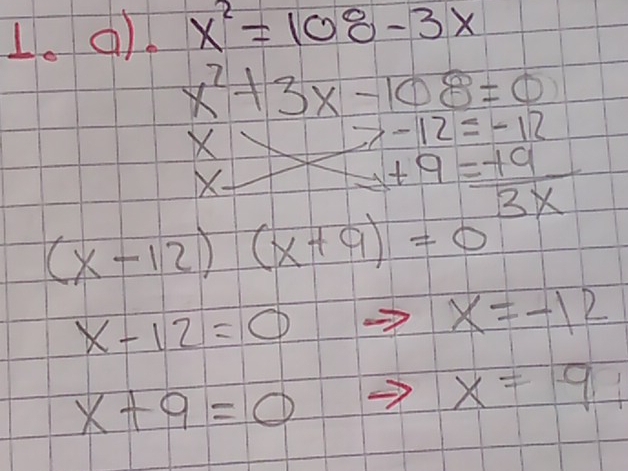 1. a). x² = 108 - 3x
x² + 3x - 108 = 0
x -12 = -12
x +9 = +9
3x
(x - 12) (x + 9) = 0
x - 12 = 0 ⇒ x = -12
x + 9 = 0 ⇒ x = 9